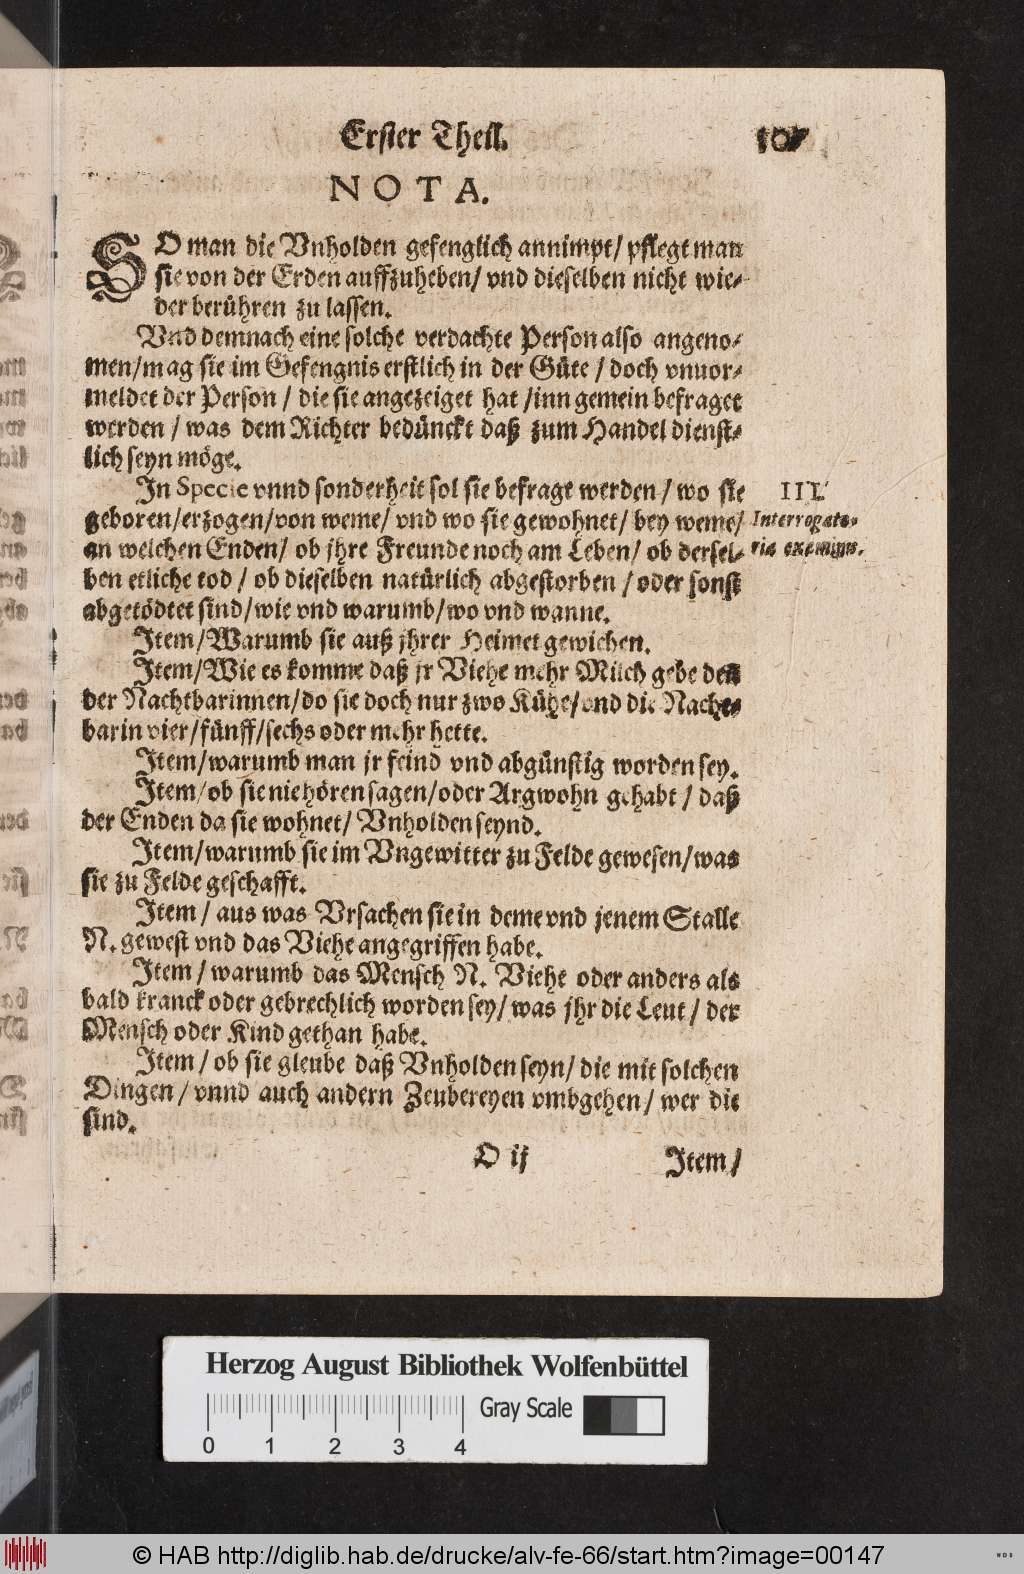 Erster Theil. 107
NOTA.
SO man die Vnholden gefenglich annimpt/ pflegt man
sie von der Erden auffzuheben/ vnd dieselben nicht wie-
der berühren zu lassen.
Vnd demnach eine solche verdachte Person also angeno-
men/mag sie im Gefengnis erstlich in der Güte / doch vnuor-
meldet der Person / die sie angezeiget hat /inn gemein befraget
werden / was dem Richter bedünckt daß zum Handel dienst-
lich seyn möge.
In Specie vnnd sonderheit sol sie befragt werden / wo sie
geboren/erzogen/von weme/ vnd wo sie gewohnet/ bey weme/
an welchen Enden/ ob jhre Freunde noch am Leben/ ob dersel-
ben etliche tod / ob dieselben natürlich abgestorben / oder sonst
abgetödtet sind/wie vnd warumb/wo vnd wanne.
III.
Interrogato-
ria exeminis.
Item/Warumb sie auß jhrer Heimet gewichen.
Item/Wie es komme daß jr Viehe mehr Milch gebe den
der Nachtbarinnen/do sie doch nur zwo Kühe/vnd die Nacht-
barin vier/fünff/sechs oder mehr hette.
Item/warumb man jr feind vnd abgünstig worden sey.
Item/ob sie nie hören sagen/oder Argwohn gehabt / daß
der Enden da sie wohnet/ Vnholden seynd.
Item/warumb sie im Vngewitter zu Felde gewesen/was
sie zu Felde geschafft.
Item / aus was Vrsachen sie in deme vnd jenem Stalle
N. gewest vnd das Viehe angegriffen habe.
Item / warumb das Mensch N. Viehe oder anders als
bald kranck oder gebrechlich worden sey/ was jhr die Leut / der
Mensch oder Kind gethan habe.
Item / ob sie gleube daß Vnholden seyn/ die mit solchen
Dingen / vnnd auch andern Zeubereyen vmbgehen/ wer die
sind.
O ij Item/
Herzog August Bibliothek Wolfenbüttel
0 1 2 3 4 Gray Scale
© HAB http://diglib.hab.de/drucke/alv-fe-66/start.htm?image=00147